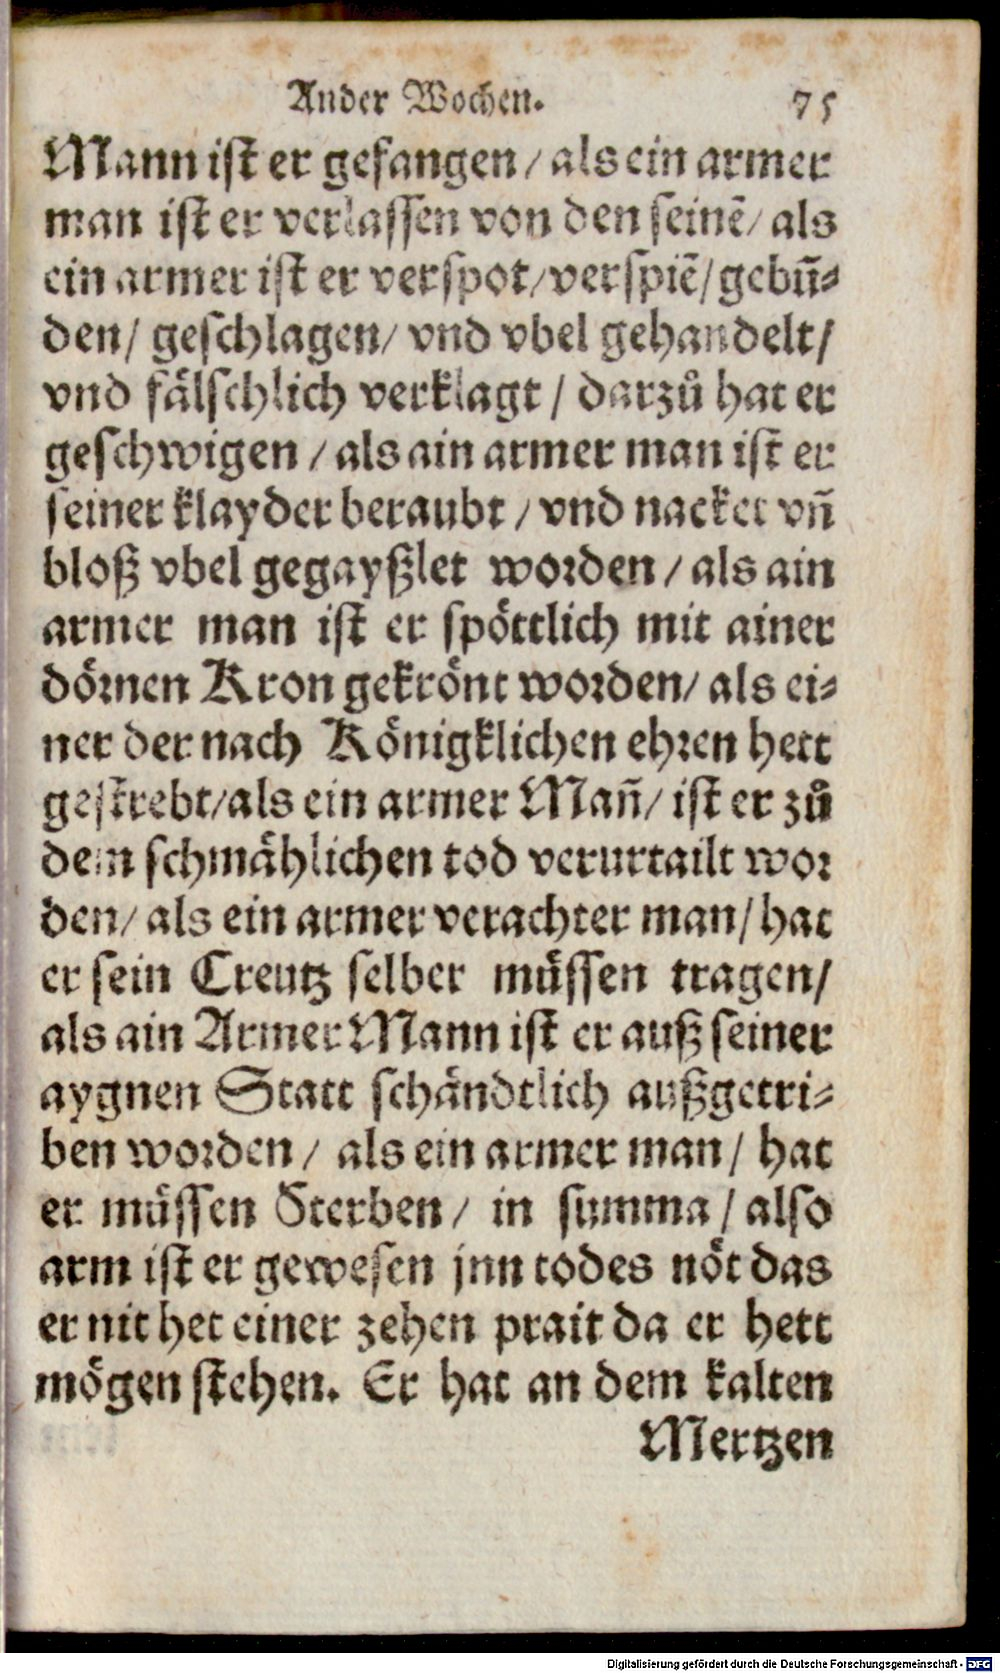 Ander Wochen. 75
Mann ist er gefangen / als ein armer
man ist er verlassen von den seinẽ / als
ein armer ist er verspot / verspiẽ / gebũ⸗
den / geschlagen / vnd vbel gehandelt /
vnd fälschlich verklagt / darzů hat er
geschwigen / als ain armer man ist er
seiner klayder beraubt / vnd nacket vñ
bloß vbel gegayßlet worden / als ain
armer man ist er spöttlich mit ainer
dörnen Kron gekrönt worden / als ei⸗
ner der nach Königklichen ehren hett
gestrebt / als ein armer Mañ / ist er zů
dem schmählichen tod verurtailt wor
den / als ein armer verachter man / hat
er sein Creutz selber müssen tragen /
als ain Armer Mann ist er auß seiner
aygnen Statt schändtlich außgetri⸗
ben worden / als ein armer man / hat
er müssen Sterben / in summa / also
arm ist er gewesen jnn todes nöt das
er nit het einer zehen prait da er hett
mögen stehen. Er hat an dem kalten
Mertzen
Digitalisierung gefördert durch die Deutsche Forschungsgemeinschaft - DFG